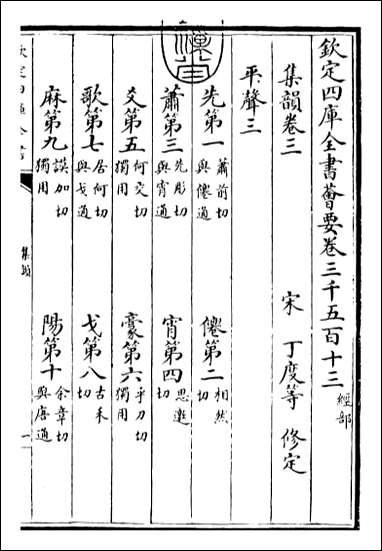 欽定四庫全書薈要卷三千五百十三 經部
集韻卷三
宋 丁度等 修定
平聲三
先第一 蕭前切與僊通 僊第二 相然切
蕭第三 先彫切與宵通 宵第四 思邀切
爻第五 何交切獨用 豪第六 乎刀切獨用
歌第七 居何切與戈通 戈第八 古禾切
麻第九 謨加切獨用 陽第十 余章切與唐通
集韻
一